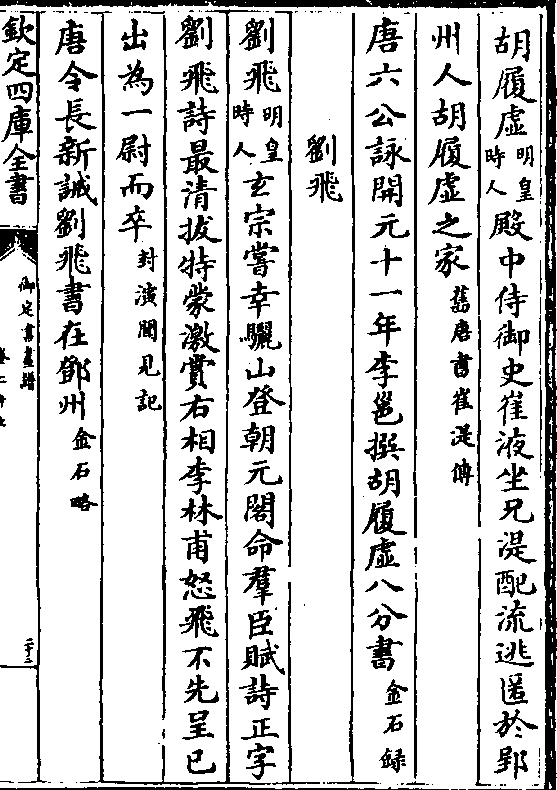 胡履虚明皇時人殿中侍御史崔液坐兄湜配流逃匿於郢
州人胡履虚之家舊唐書崔湜傳
唐六公詠開元十一年李邕撰胡履虚八分書金石録
劉飛
劉飛明皇時人玄宗嘗幸驪山登朝元閣命羣臣賦詩正字
劉飛詩最清拔特蒙激賞右相李林甫怒飛不先呈已
出為一尉而卒封演聞見記
唐令長新誡劉飛書在鄧州金石略
欽定四庫全書
御定書畫譜